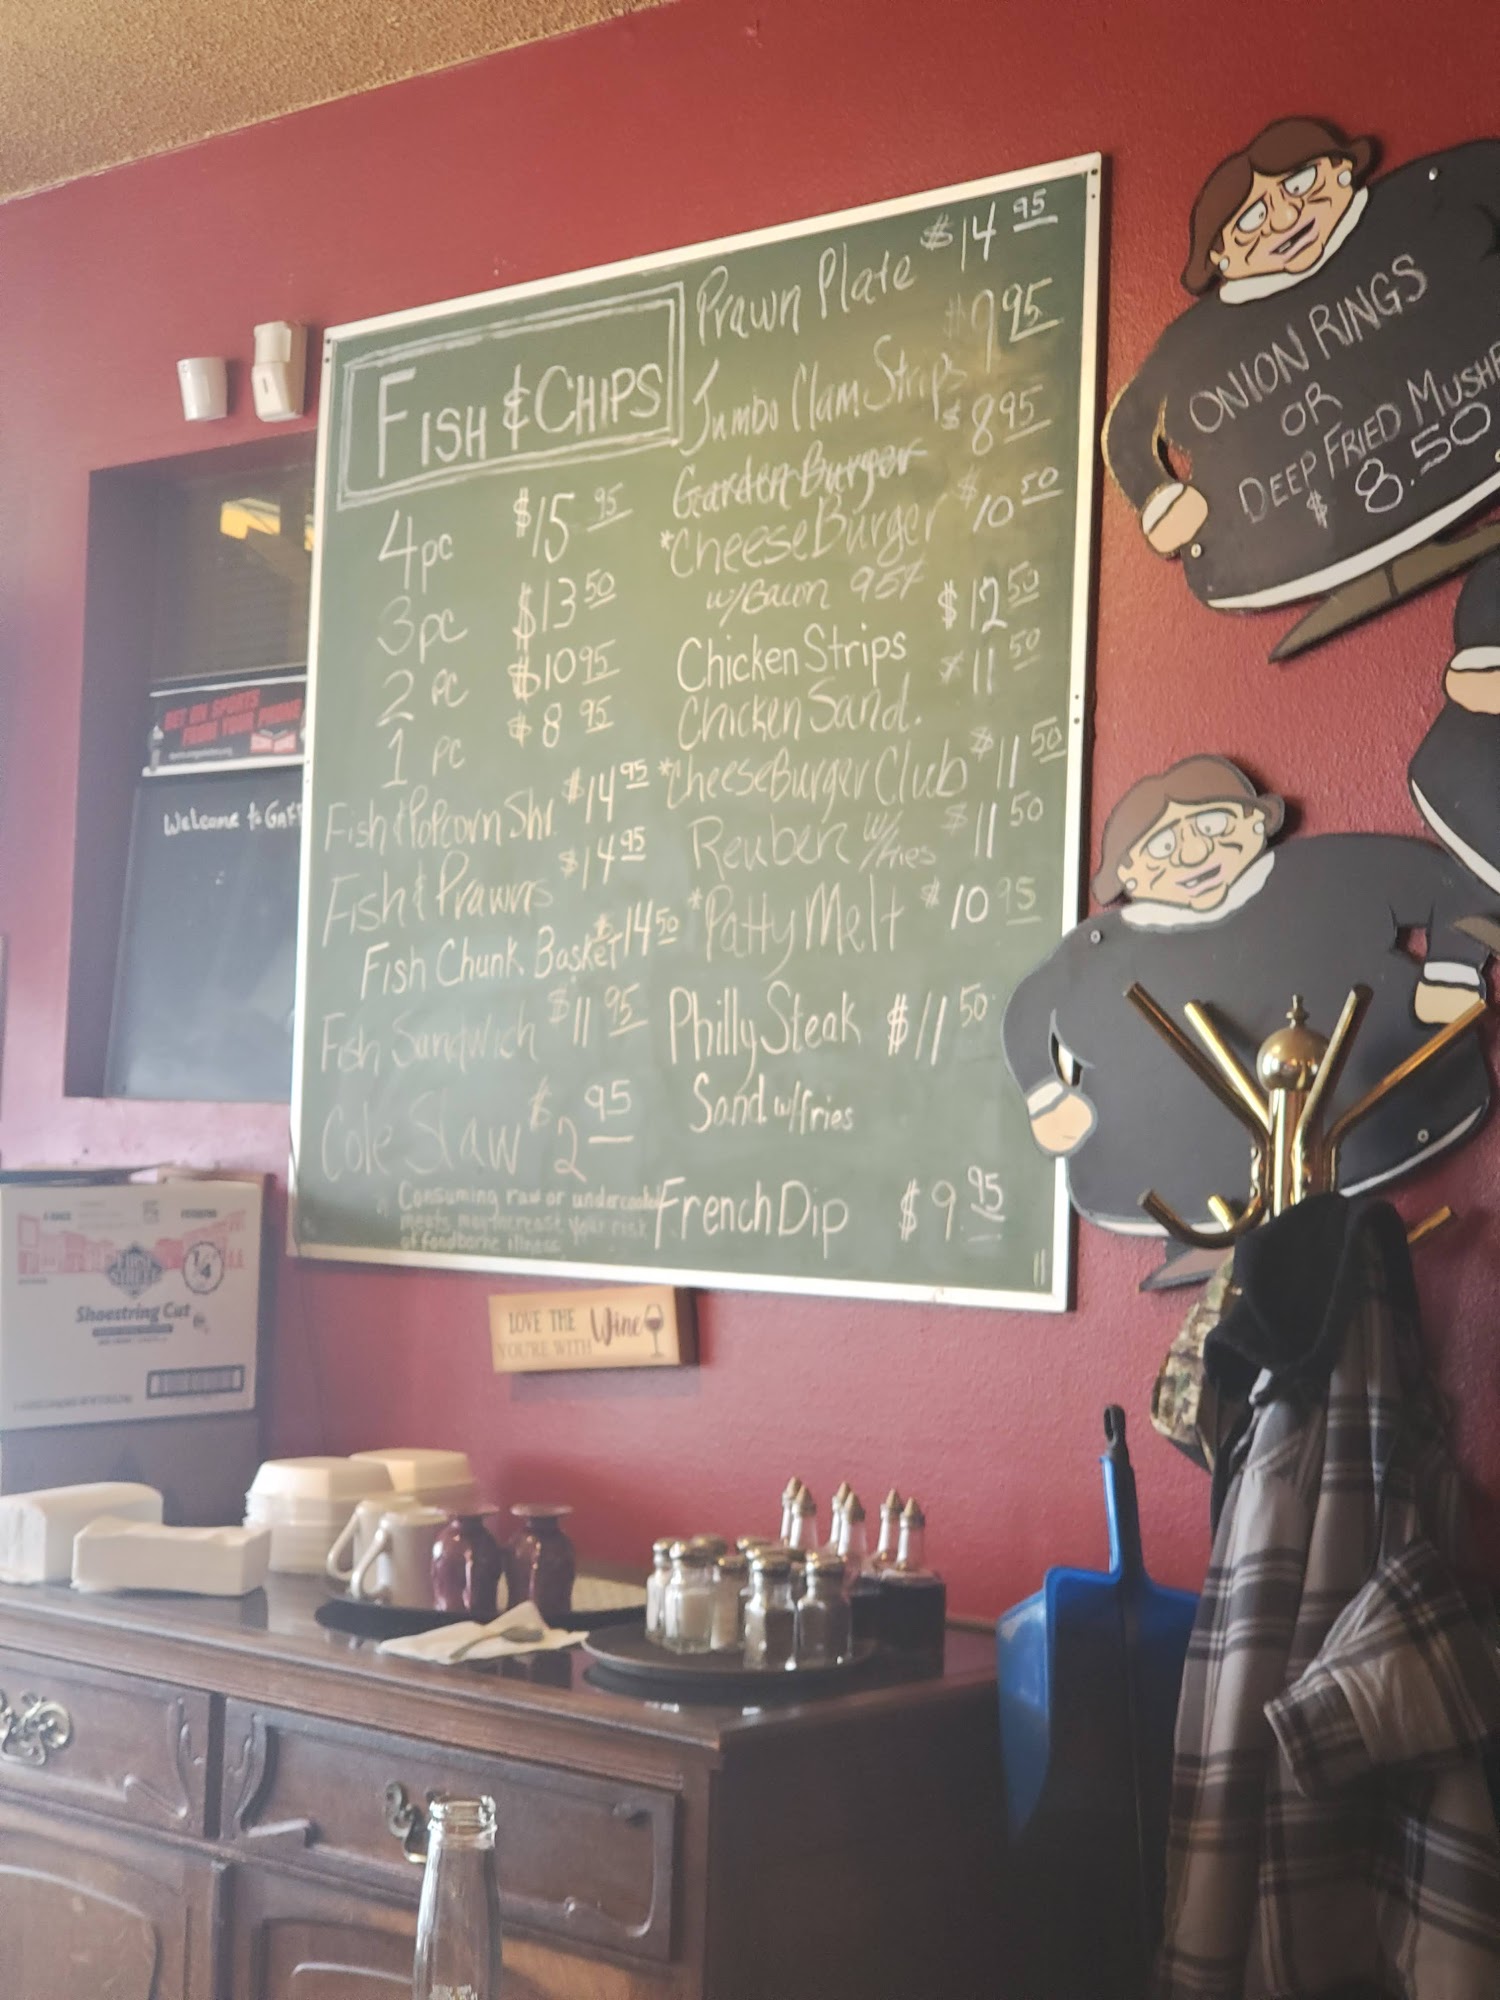 FISH & CHIPS
4pc $15 95
3pc $13 50
2 pc $10 95
1 pc $8 95
Fish & Popcorn Shr. $14 95
Fish & Prawns $14 95
Fish Chunk Basket $14 50
Fish Sandwich $11 95
Cole Slaw $2 95
* Consuming raw or undercooked
meats may increase your risk
of foodborne illness
Prawn Plate $14 95
Jumbo Clam Strips $9 95
Garden Burger $8 95
*CheeseBurger $10 50
w/Bacon
Chicken Strips $12 50
Chicken Sand. $11 50
*CheeseBurger Club $11 50
Reuben w/fries $11 50
*Patty Melt $10 95
Philly Steak $11 50
Sand. w/fries
French Dip $9.95
ONION RINGS
OR
DEEP FRIED MUSHR
$ 8.50
BET ON SPORTS
FROM YOUR PHONE
Welcome to
LOVE THE Wine
YOU'RE WITH
1/4
Shoestring Cut